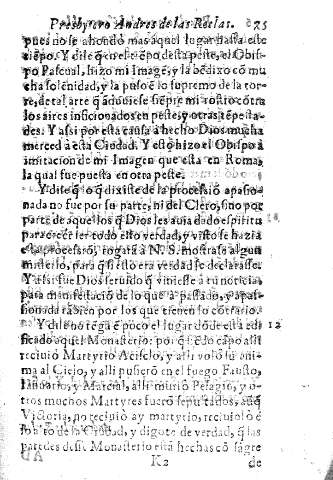 Presbytero Andres de las Roelas. 75
pues no se ahondò mas aquel lugar hasta este
tiẽpo. Y dile q̃ en el tiẽpo desta peste, el Obis-
po Pascual, hizo mi Imagẽ, y la bẽdixo cõ mu
cha solẽnidad, y la puso ẽ lo supremo de la tor-
re, de tal arte q̃ siẽpre mi rostro cõtra
los aires inficionados en peste, y otras tẽpesta-
des: Y assi por esta causa à hecho Dios mucha
merced à esta Ciudad. Y esto hizo el Obispo à
imitacion de mi Imagen que esta en Roma,
la qual fue puesta en otra peste.
Y dile q̃ lo q̃ dixiste de la processiõ apasio-
nada no fue por su parte, ni del Clero, sino por
parte de aquelos q̃ Dios les auia dado espiritu
para creer ser todo esto verdad, y visto se hazia
esta processiõ, rogarà à N. S. mostrase algun
misterio, para q̃ si esto era verdad se declarasse.
Y assi fue Dios seruido q̃ viniesse à tu noticia,
para manifestaciõ de lo que à passado, y apas-
sionada tãbien por los que tienen lo cõtrario.
Y dile no tẽga ẽ poco el lugar dõde està edi 12
ficado aquel Monasterio: por q̃ ẽ do capo alli
reciuiò Martyrio Acisclo, y alli volò su ani-
ma al Cielo, y alli pusierõ en el fuego Fausto,
Ianuario, y Marcial, alli muriò Pelagio, y o-
tros muchos Martyres fuerõ sepultados, aũq̃
Victoria, no reciuiò ay martyrio, reciuiolo ẽ
lo alto de la Ciudad, y digote de verdad, q̃ las
paredes desse Monasterio està hechas cõ sãgre
K2 de